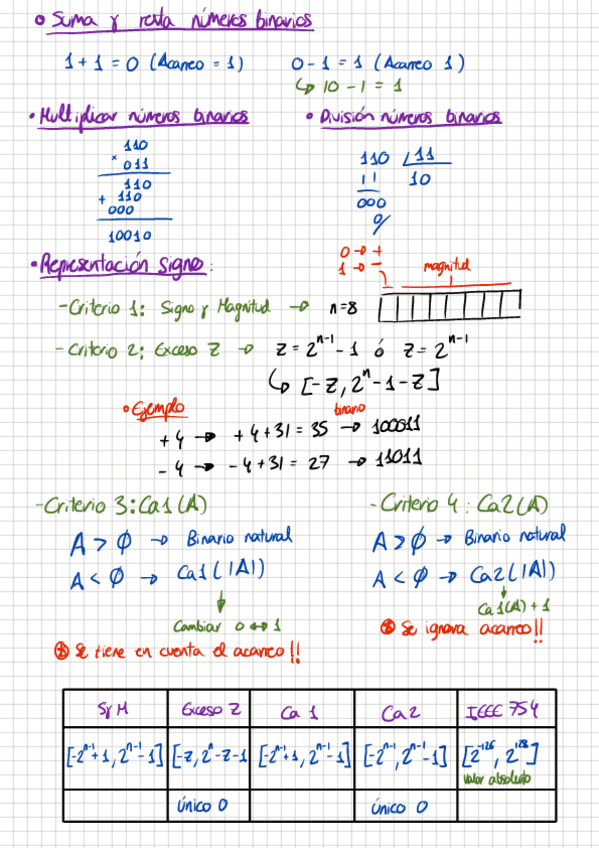 Suma y resta números binarios
1 + 1 = 0 (Acarreo = 1)
0 - 1 = 1 (Acarreo 1)
↳ 10 - 1 = 1
• Multiplicar números binarios
110
× 011
110
+ 110
000
10010
• División números binarios
110 | 11
11 10
000
0/
• Representación Signo:
0 → +
1 → -
magnitud
- Criterio 1: Signo y Magnitud → n=8
- Criterio 2: Exceso Z → Z = 2^n-1 - 1 ó Z = 2^n-1
↳ [-Z, 2^n - 1 - Z]
• Ejemplo
binario
+4 → +4+31 = 35 → 100011
-4 → -4+31 = 27 → 11011
- Criterio 3: Ca1(A)
A > Ø → Binario natural
A < Ø → Ca1(|A|)
↓
Cambiar 0 ↔ 1
⊛ Se tiene en cuenta el acarreo!!
- Criterio 4: Ca2(A)
A > Ø → Binario natural
A < Ø → Ca2(|A|)
↓
Ca1(A) + 1
⊛ Se ignora acarreo!!
SyM Exceso Z Ca 1 Ca2 IEEE 754
[-2^n-1 + 1, 2^n-1 - 1] [-Z, 2^n - Z - 1] [-2^n-1 + 1, 2^n-1 - 1] [-2^n-1, 2^n-1 - 1] [2^-126, 2^128]
valor absoluto
único 0 único 0